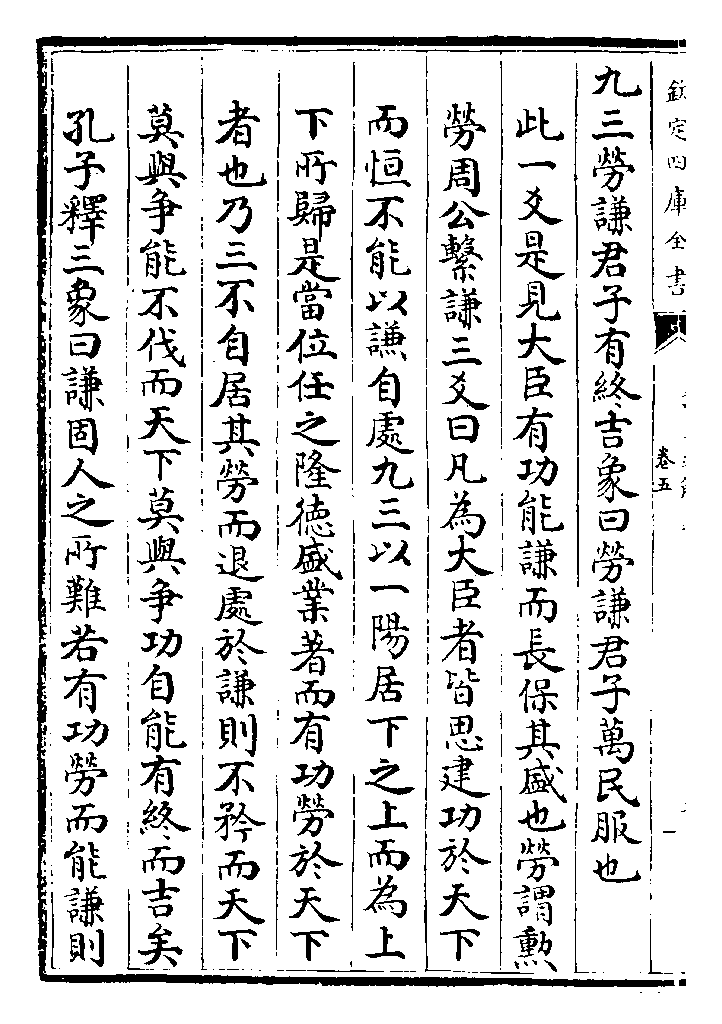 欽定四庫全書
卷五
九三勞謙君子有終吉象曰勞謙君子萬民服也
此一爻是見大臣有功能謙而長保其盛也勞謂勲
勞周公繫謙三爻曰凡為大臣者皆思建功於天下
而恒不能以謙自處九三以一陽居下之上而為上
下所歸是當位任之隆德盛業著而有功勞於天下
者也乃三不自居其勞而退處於謙則不矜而天下
莫與争能不伐而天下莫與争功自能有終而吉矣
孔子釋三象曰謙固人之所難若有功勞而能謙則